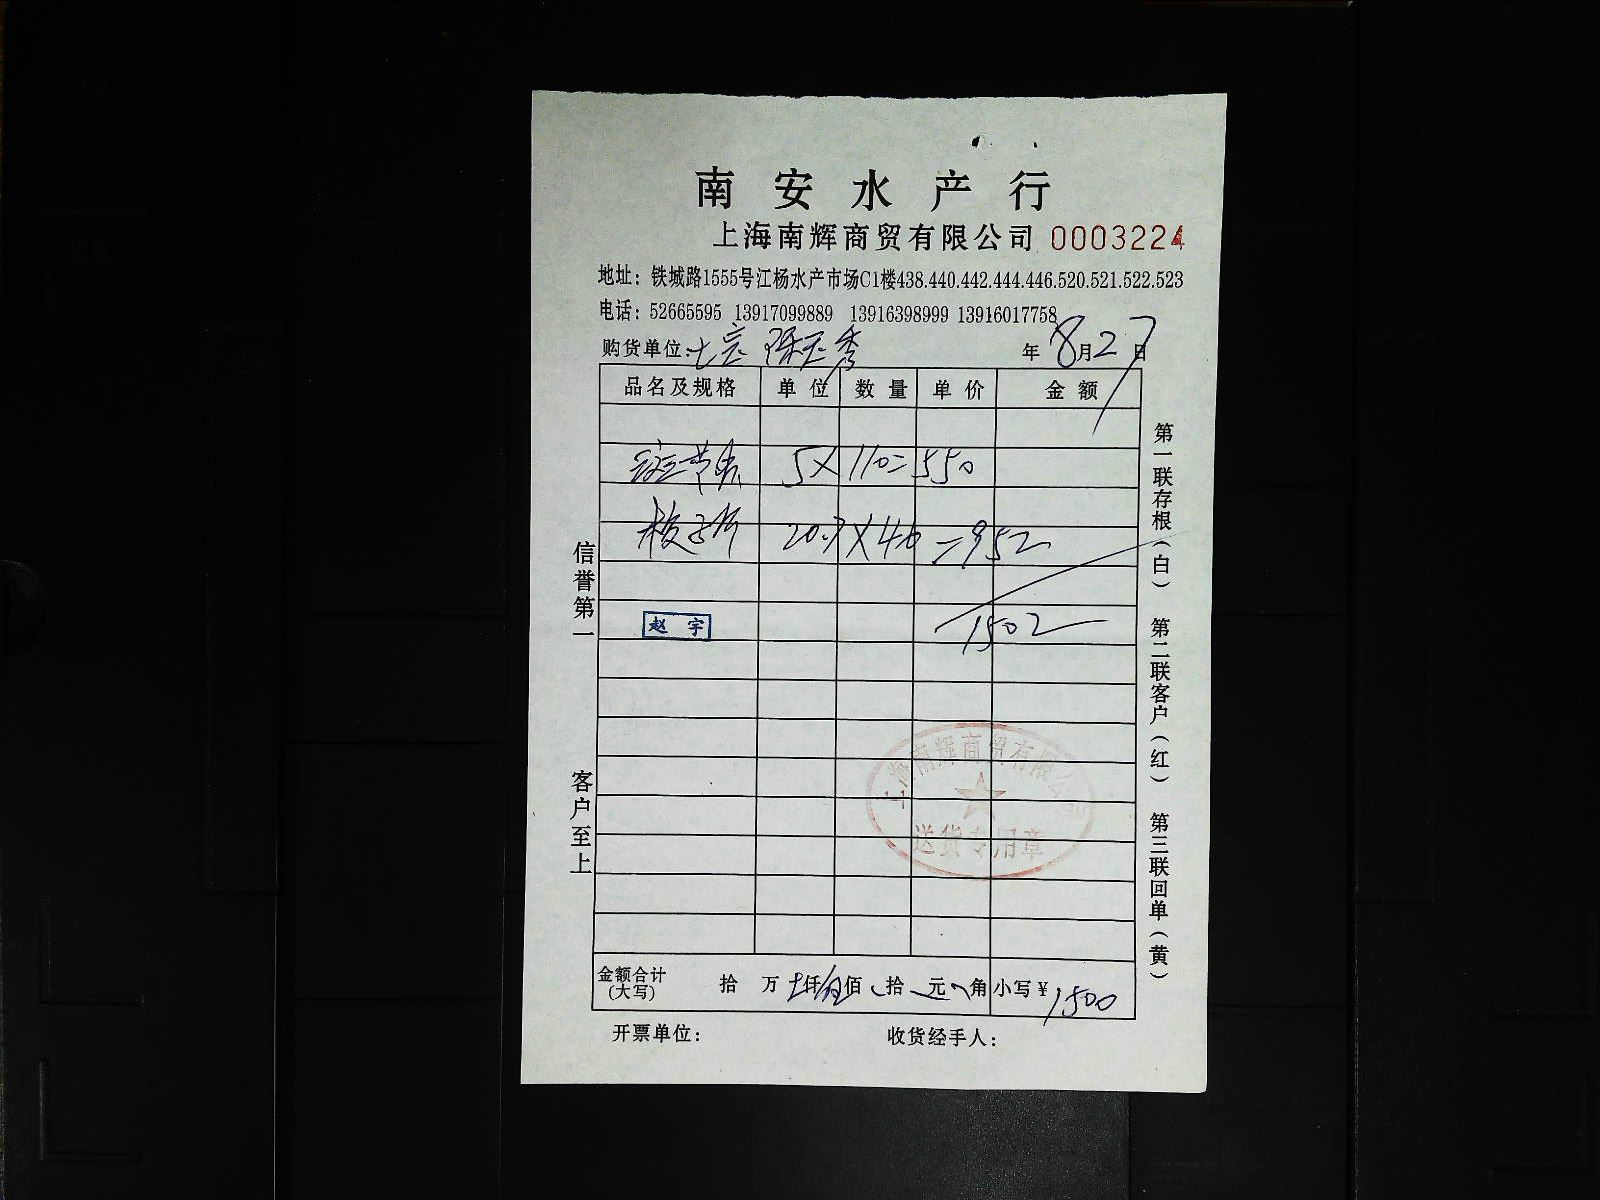 南安水产行
上海南辉商贸有限公司 0003224
地址：铁城路1555号江杨水产市场C1楼438.440.442.444.446.520.521.522.523
电话：52665595 13917099889 13916398999 13916017758
购货单位： 年8月27日
品名及规格 单位 数量 单价 金额
5×110=550
20.7×46=952
1502
赵宇
上海南辉商贸有限公司
送货专用章
金额合计(大写) 拾 万 仟 佰 拾 元 角 小写¥1500
开票单位： 收货经手人：
信誉第一 客户至上
第一联存根（白） 第二联客户（红） 第三联回单（黄）